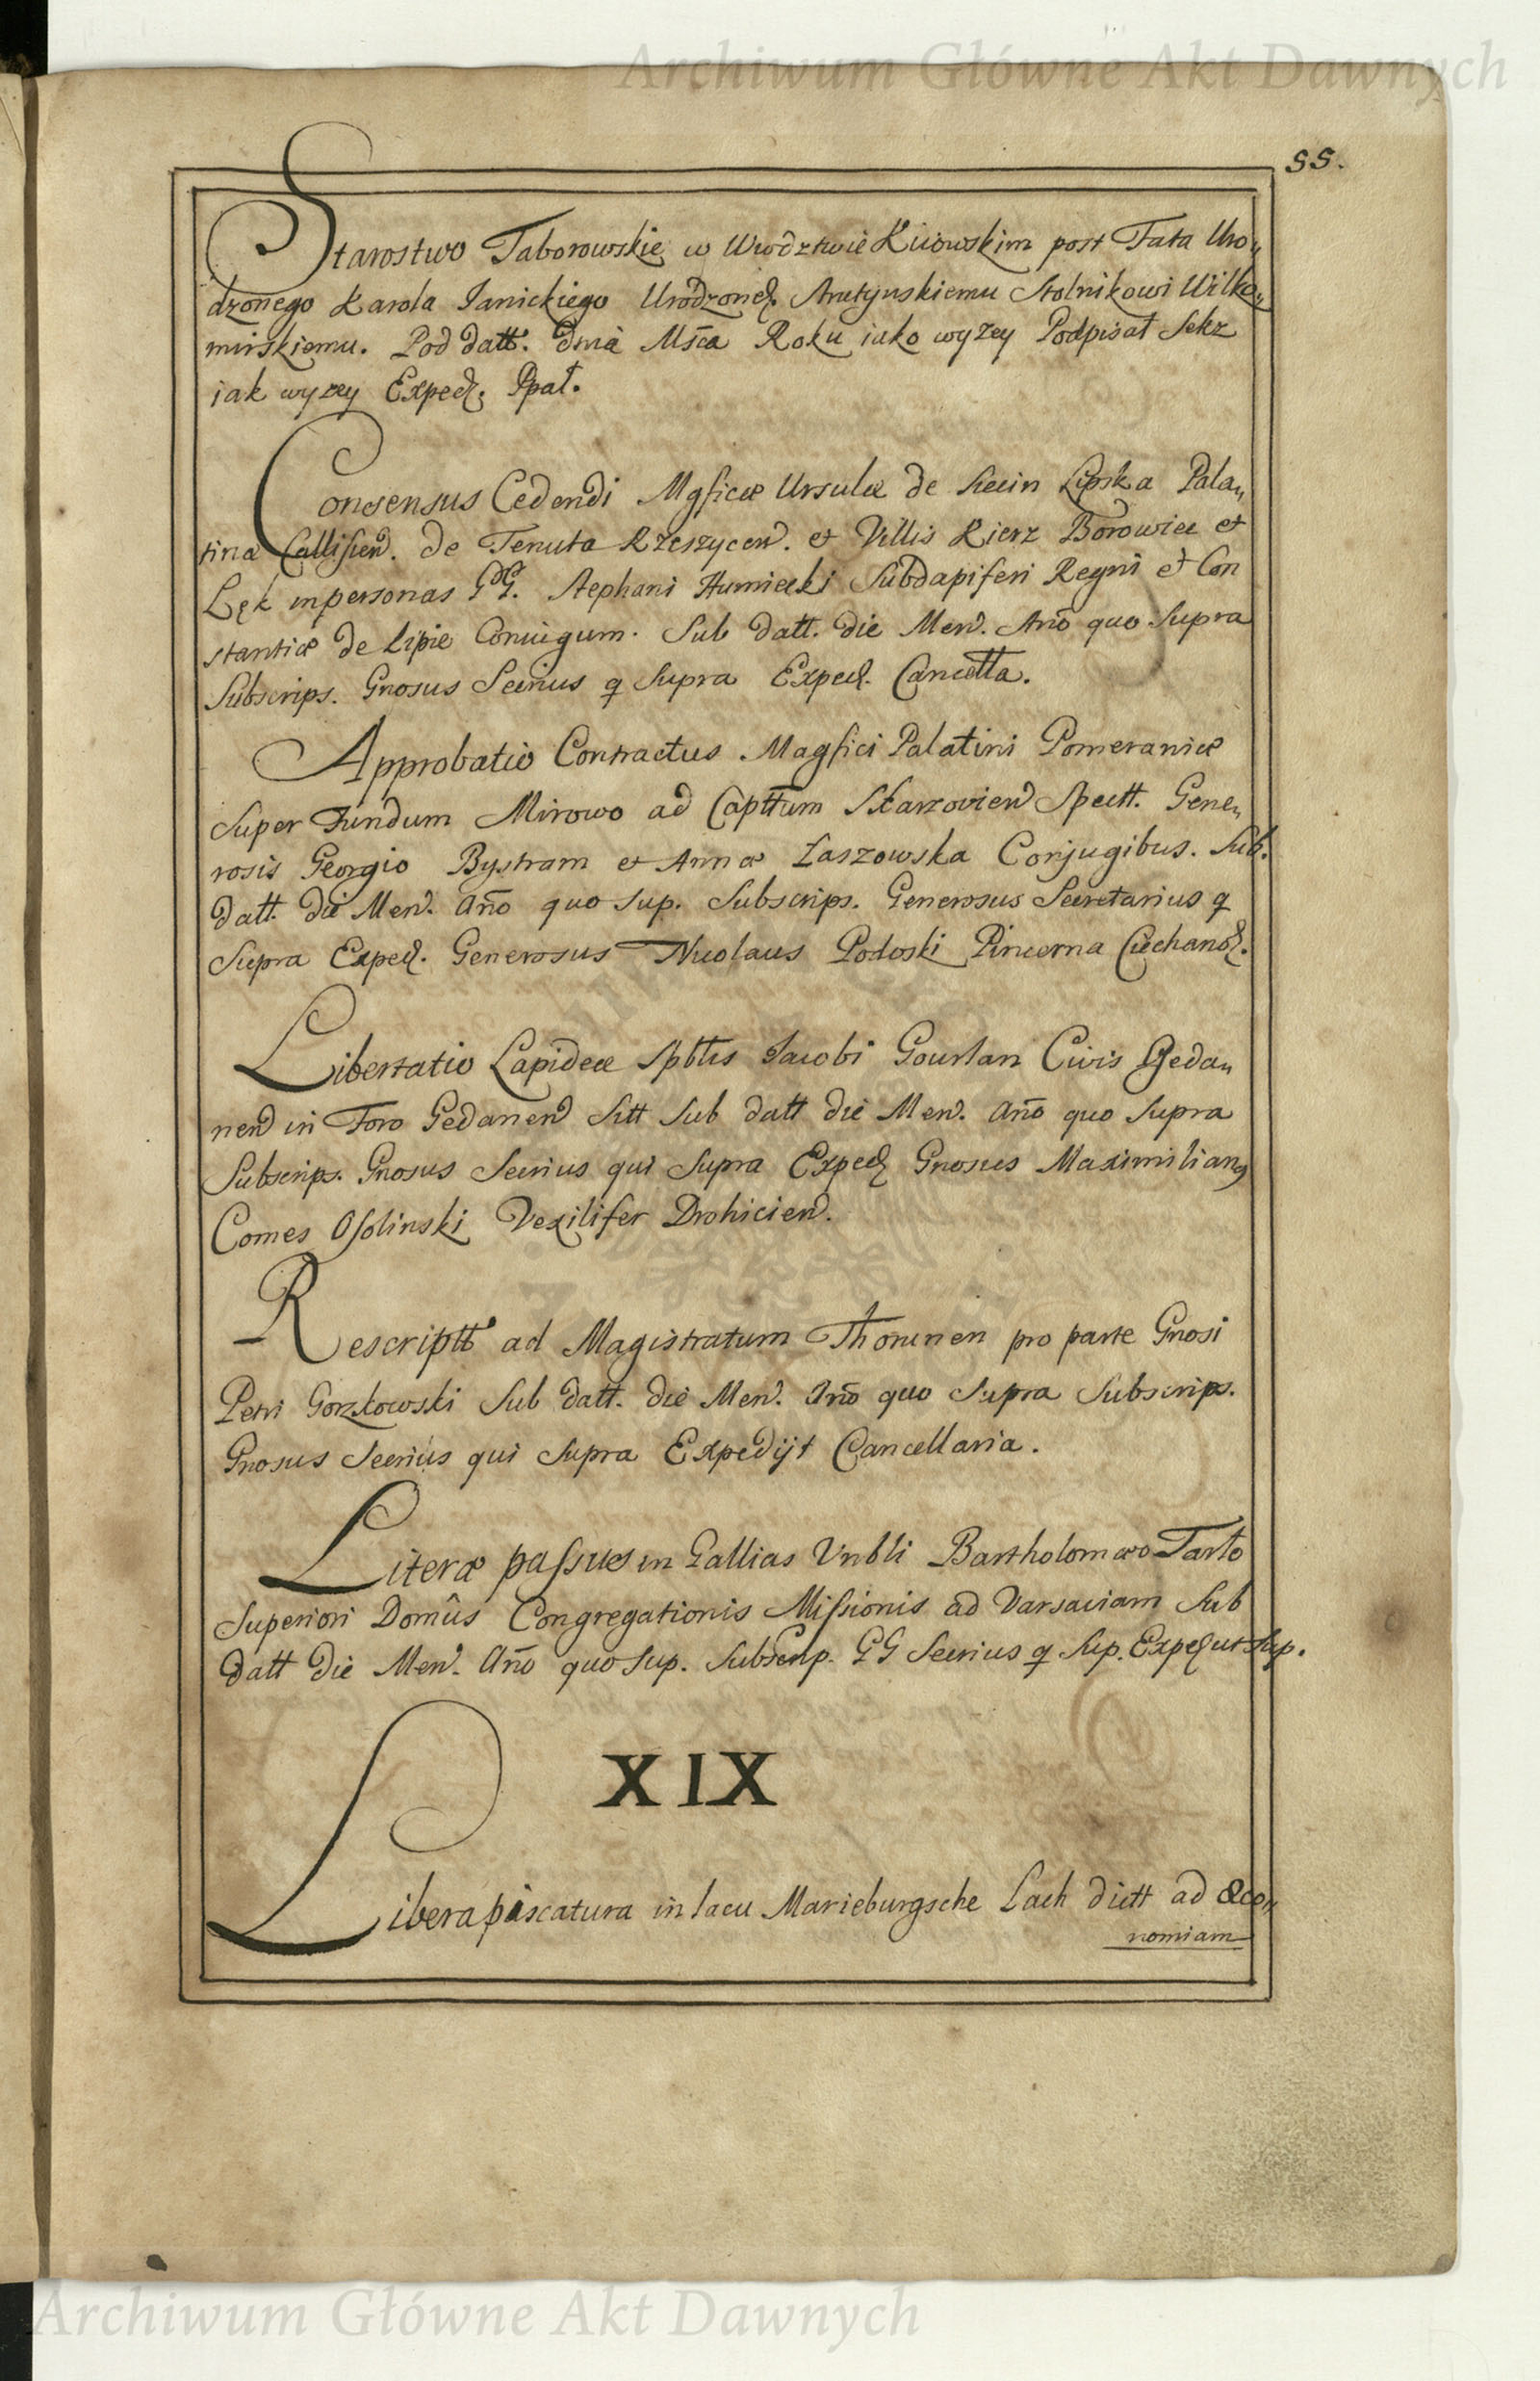 Archiwum Główne Akt Dawnych
55.
Starostwo Taborowskie w Wwodztwie Kiiowskim post Fata Uro„
dzonego Karola Janickiego Urodzoneḿ. Arutynskiemu Stolnikowi Wilko„
mirskiemu. Pod datt. dnia Mśca Roku iako wyżey Podpisał Sekr
iak wyżey Exped. Ppał.
Consensus Cedendi Mgficæ Ursulæ de Siecin Lipska Pala„
tina Callisień. de Tenuta Rzeszyceń. et Villis Kierz Borowiec et
Lęk in personas GG. Stephani Humiecki Subdapiferi Regni et Con
stantiæ de Lipie Coniugum. Sub datt. die Men. Año quo Supra
Subscrips. Gnosus Secrius q Supra Exped. Cancella.
Approbatio Contractus Magfici Palatini Pomeraniæ
Super Fundum Mirowo ad Capttum Skarzovien Spectt. Gene„
rosis Georgio Bystram et Annæ Laszowska Conjugibus. Sub.
datt. die Men. Año quo Sup. Subscrips. Generosus Secretarius q
Supra Exped. Generosus Nicolaus Podoski Pincerna Ciechanoł.
Libertatio Lapideæ Spbtis Jacobi Gourlan Civis Geda„
nen in Foro Gedanen Sitt Sub datt die Men. Año quo Supra
Subscrips. Gnosus Secrius qui Supra Exped Gnosus Maximilian9
Comes Osolinski Vexilifer Drohicien.
Rescriptt ad Magistratum Thorunen pro parte Gnosi
Petri Gorzkowski Sub datt. die Men. Año quo Supra Subscrips.
Gnosus Secrius qui Supra Expedijt Cancellaria.
Literæ passus in Gallias Vnbli Bartholomæo Tarto
Superiori Domûs Congregationis Missionis ad Varsaviam Sub
datt die Men. Año quo Sup. Subscrip. GG Secrius q Sup. Exped ut Sup.
XIX
Libera piscatura in lacu Marieburgsche Lach dictt ad Œco„
nomiam
Archiwum Główne Akt Dawnych